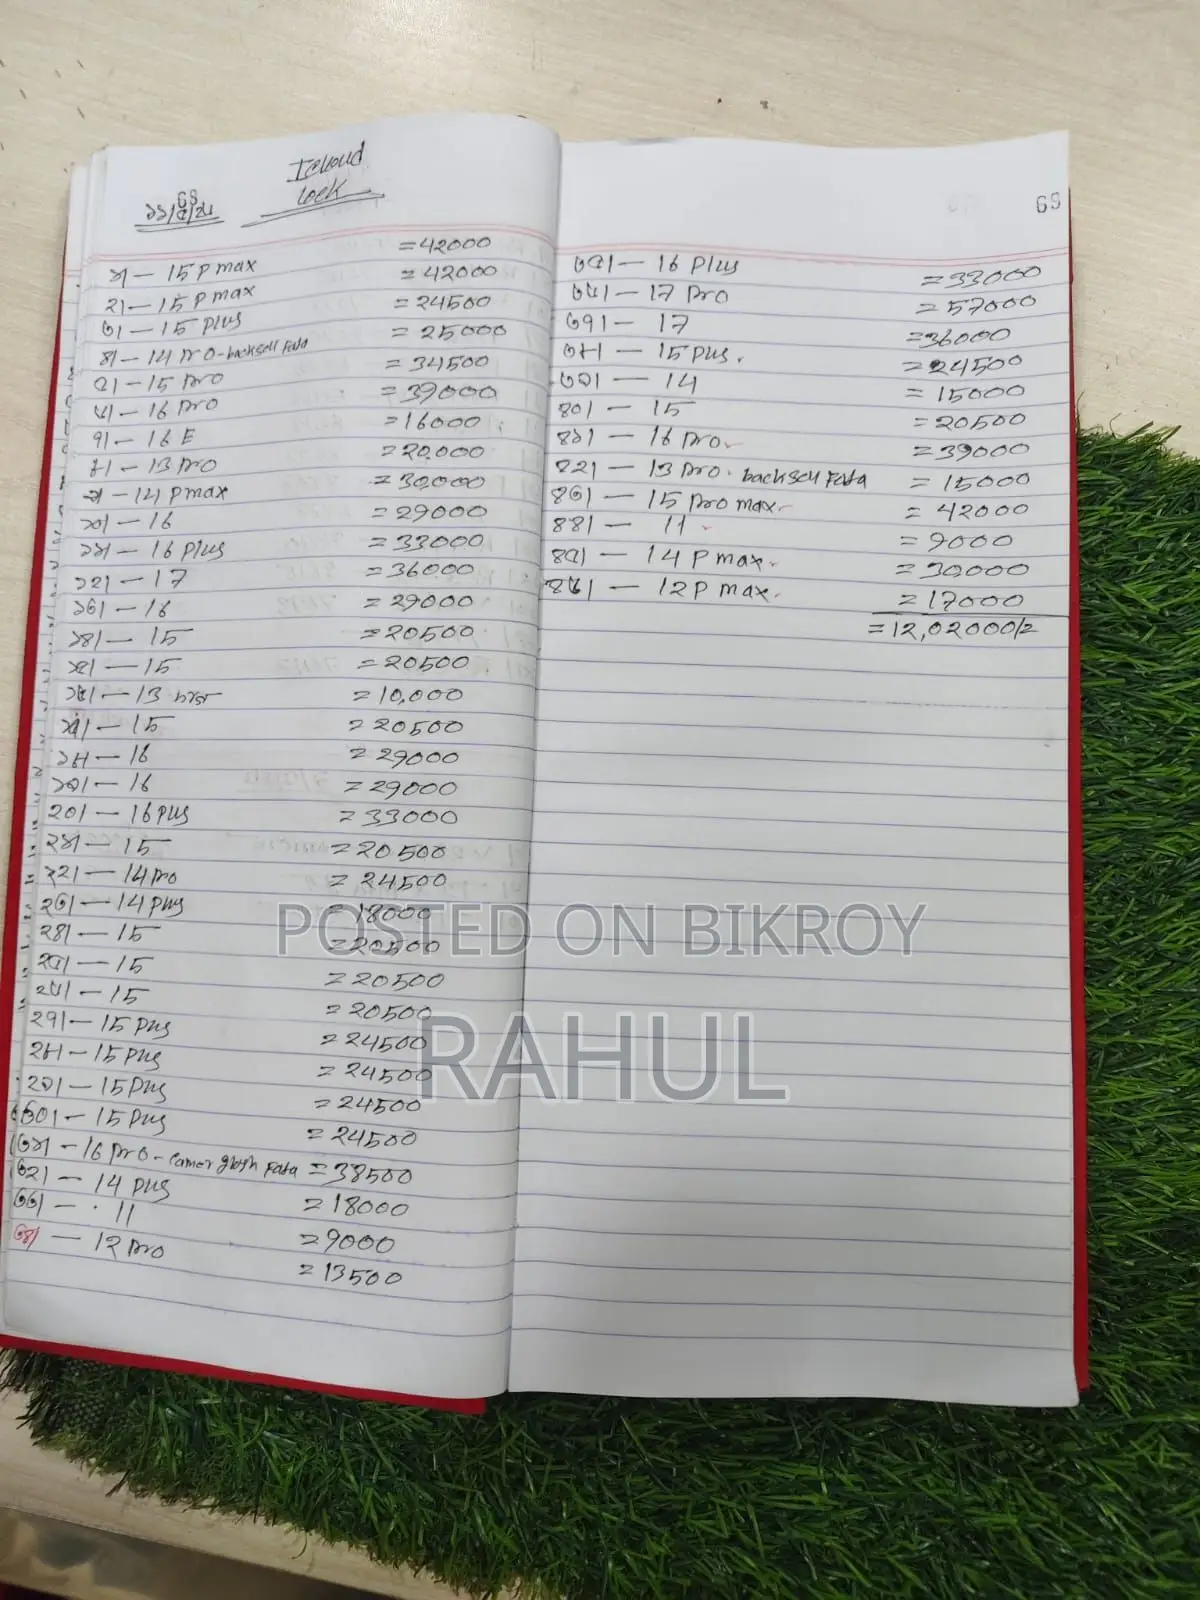 68
Icloud
Lock
১১/৫/২৫
১৷ — 15 P max = 42000
২৷ — 15 P max = 42000
৩৷ — 15 Plus = 24500
৪৷ — 14 Pro - backsell Fata = 25000
৫৷ — 15 Pro = 34500
৬৷ — 16 Pro = 39000
৭৷ — 16 E = 16000
৮৷ — 13 Pro = 20,000
৯৷ — 14 P max = 30,000
১০৷ — 16 = 29000
১১৷ — 16 Plus = 33000
১২৷ — 17 = 36000
১৩৷ — 16 = 29000
১৪৷ — 15 = 20500
১৫৷ — 15 = 20500
১৬৷ — 13 = 10,000
১৭৷ — 15 = 20500
১৮৷ — 16 = 29000
১৯৷ — 16 = 29000
২০৷ — 16 Plus = 33000
২১৷ — 15 = 20500
২২৷ — 14 Pro = 24500
২৩৷ — 14 Plus = 18000
২৪৷ — 15 = 20500
২৫৷ — 15 = 20500
২৬৷ — 15 = 20500
২৭৷ — 15 Plus = 24500
২৮৷ — 15 Plus = 24500
২৯৷ — 15 Plus = 24500
৩০৷ — 15 Plus = 24500
৩১৷ — 16 Pro - Camer glash Fata = 38500
৩২৷ — 14 Plus = 18000
৩৩৷ — 11 = 9000
৩৪৷ — 12 Pro = 13500
69
৩৫৷ — 16 Plus = 33000
৩৬৷ — 17 Pro = 57000
৩৭৷ — 17 = 36000
৩৮৷ — 15 Plus. = 24500
৩৯৷ — 14 = 15000
৪০৷ — 15 = 20500
৪১৷ — 16 Pro. = 39000
৪২৷ — 13 Pro. backsell Fata = 15000
৪৩৷ — 15 Pro max. = 42000
৪৪৷ — 11. = 9000
৪৫৷ — 14 P max. = 30,000
৪৬৷ — 12 P max. = 17000
= 12,02000/=
POSTED ON BIKROY
RAHUL